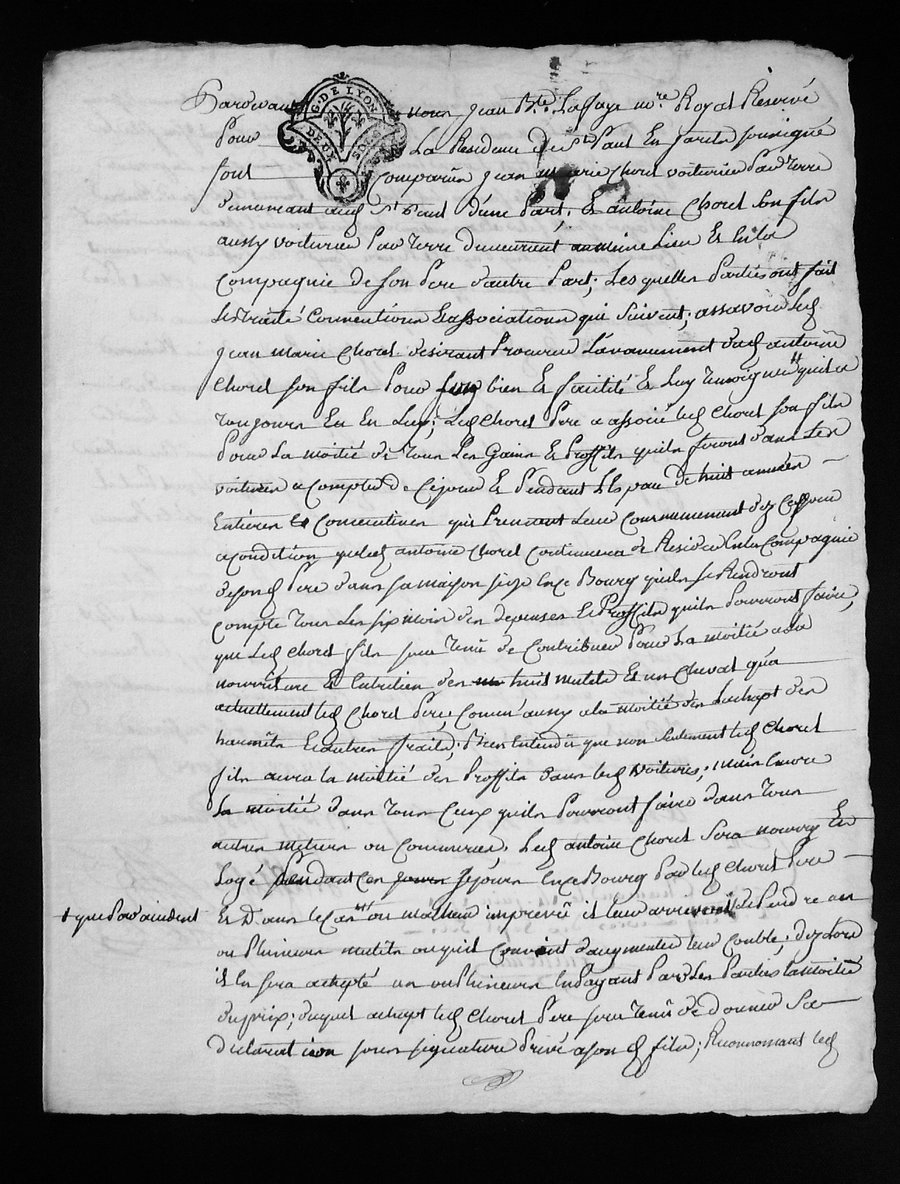 G. DE LYON
DEUX SOLS
Pardevant nous Jean Bte Laffay nre Royal Reservé
Pour La Residence de St Paul En Jarits soussigné
sont Comparûs Jean marie Chorel voiturier Par Terre
demeurant aud St Paul d'une Part, Et antoine Chorel son fils
aussy voiturier Par Terre demeurent au meme Lieu Et En la
Compagnie de son Pere d'autre Part; Lesquelles Parties ont fait
Les traité Conventions Et associations qui suivent; assavoir led
Jean Marie Chorel desirant Procurer L'avancement dud antoine
Chorel son fils Pour son bien Et facilité Et Luy temoigner qu'il a
toujours eu En Luy; Led Chorel Pere a associé led Chorel son fils
Pour La moitié de tous Les Gains Et Proffits qu'ils feront dans Les
voitures a Compter de Cejour Et Pendant L'espace de huit années
Entieres Et Consecutives qui Prennent Leur Commencement dez Cejour
a Condition que led antoine Chorel Continuera de Resider En la Compagnie
de sond Pere dans sa maison size En ce Bourg qu'ils se Rendront
Compte tous Les six mois des depenses Et Proffits qu'ils Pourront faire,
que Led Chorel fils sera tenû de Contribuer Pour La moitié a la
nourriture Et Entretien des huit mulets Et un Cheval qu'a
actuellement led Chorel Pere; Comm'aussy a la moitié des Lachapt des
harnois Et autres fraits; Bien Entendû que non seulement led Chorel
fils aura la moitié des Proffits dans lesd voitures; mais Encore
La moitié dans tous Ceux qu'ils Pourront faire dans tous
autres metiers ou Commerces, Led antoine Chorel Sera nourry Et
Logé Pendant Ces sejours En ce Bourg Par led Chorel Pere
+ que Par accident
Et Dans le Cas ou malheur imprevû il leur arriveroit de Perdre un
ou Plusieurs mulets ou qu'il Convint d'augmenter leur Couble, dez lors
il En sera achepté un ou Plusieurs En Payant Par Les Parties la moitié
du prix; duquel achapt led Chorel Pere sera tenû de donner Sa
declaration sous signature Privé a son d fils; Reconnoissant led